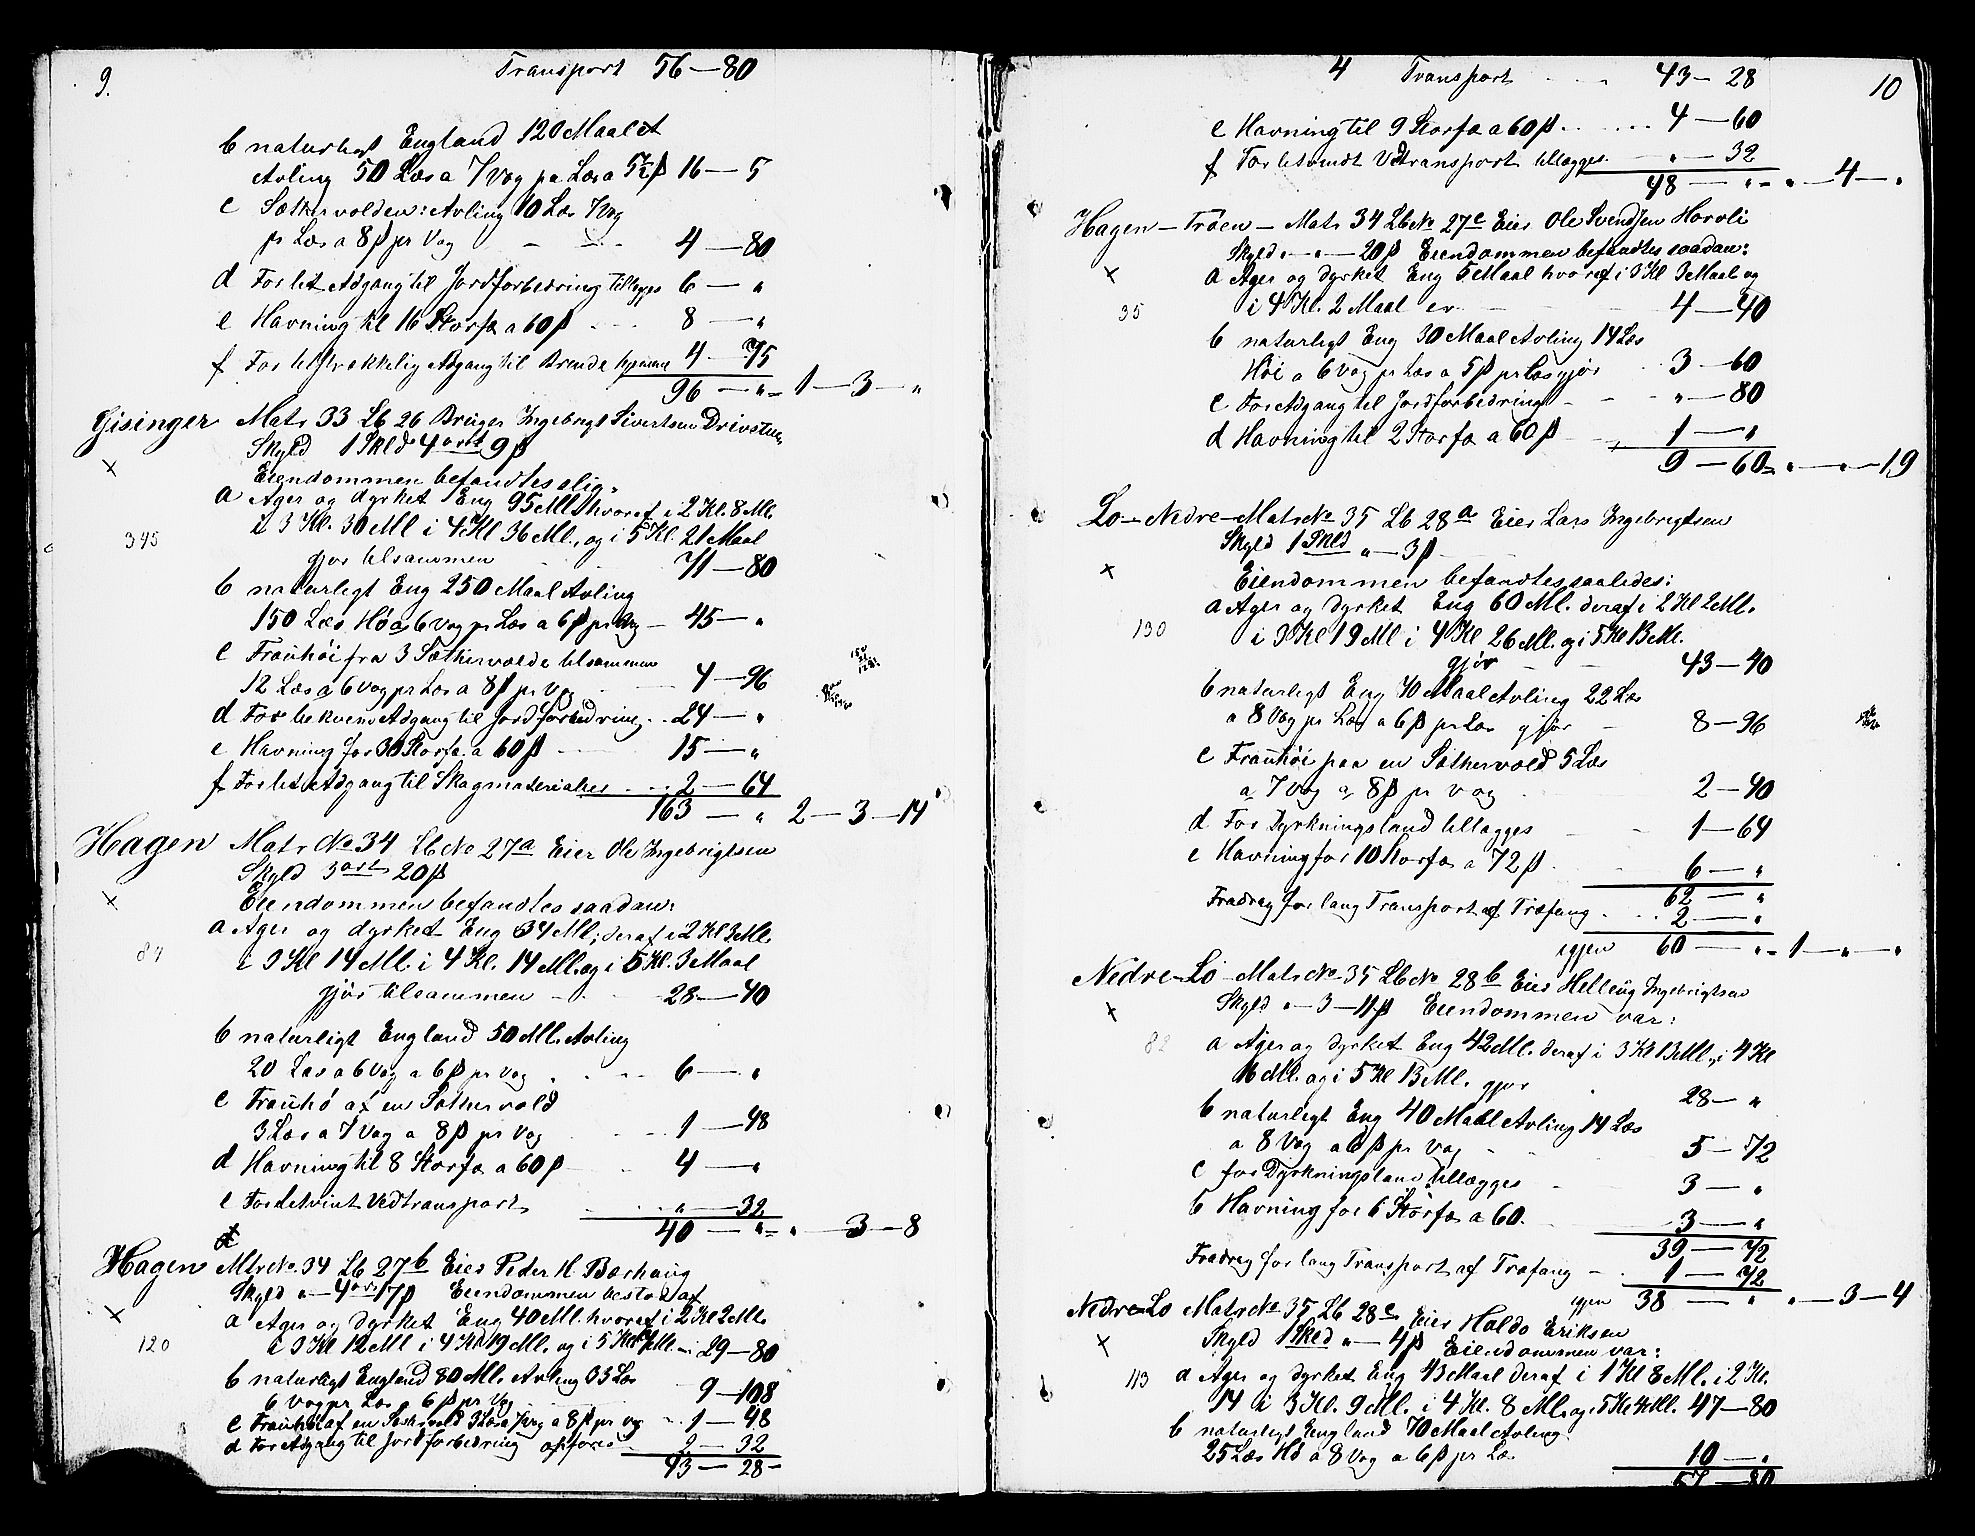 9.
Transport 56 — 80
b naturligt England 120 Maal et
Avling 50 Læs a 7 Vog pr Læs a 5½ β 16 — 5
c Sætervolden: Avling 10 Læs 7 Vog
pr Læs a 8 β pr Vog 4 — 80
d For let Adgang til Jordforbedring tillegges 6 — "
e Havning til 16 Storfæ a 60 β 8 — "
f For tilstrækkelig Adgang til Brende 4 — 75
96 — " = 1 — 3 — "
Gisinger Matr 33 Lb 26 Bruger Ingebrigt Sivertsen Drivstuen
Skyld 1 Skld 4 ort 9 β
Eiendommen befandtes slig.
a Ager og dyrket Eng 95 Ml hvoraf i 2 Kl. 8 Ml.
i 3 Kl. 30 Ml i 4 Kl 36 Ml., og i 5 Kl. 21 Maal
345
gjør tilsammen 71 — 80
b naturligt Eng 250 Maal Avling
150 Læs Hø a 6 Vog pr Læs a 6 β pr Vog — 45 — "
c Frauhøi fra 3 Sæthervolde tilsammen
12 Læs a 6 Vog pr Læs a 8 β pr Vog 4 — 96
d For bekvem Adgang til Jordforbedring 24 — "
e Havning for 30 Storfæ a 60 β 15 — "
f For let Adgang til Skogmaterialier 2 — 64
163 — " 2 — 3 — 14
Hagen Matr No 34 Lb No 27a Eier Ole Ingebrigtsen
Skyld 3 ort 20 β
Eiendommen befandtes saadan:
a Ager og dyrket Eng 34 Ml; deraf i 2 Kl 3 Ml.
84
i 3 Kl 14 Ml. i 4 Kl. 14 Ml. og i 5 Kl. 3 Maal
gjør tilsammen 28 — 40
b naturligt England 50 Ml. Avling
20 Læs a 6 Vog a 6 β pr Vog 6 — "
c Frauhø af en Sæthervold
3 Læs a 7 Vog a 8 β pr Vog 1 — 48
d Havning til 8 Storfæ a 60 β 4 — "
e For letvint Vedtransport " — 32
40 — " = " — 3 — 8
Hagen Mtr No. 34 Lb 27b Eier Peder H. Bærhaug
Skyld " — 4 ort 17 β Eiendommen bestod af
a Ager og dyrket Eng 40 Ml. hvoraf i 2 Kl 2 Ml.
120
i 3 Kl 12 Ml i 4 Kl 19 Ml. og i 5 Kl 7 Ml. — 29 — 80
b naturligt England 80 Ml. Avling 33 Læs
6 Vog pr Læs a 6 β pr Vog 9 — 108
c Frauhøi af en Sæthervold 3 Læs a 7 Vog a 8 β pr Vog 1 — 48
d For Adgang til Jordforbedring opføres 2 — 32
43 — 28 —
4 Transport 43 — 28
10
e Havning til 9 Storfæ a 60 β 4 — 60
f For letvindt Vedtransport tillægges " — 32
48 — " = " — 4 — "
Hagen — Trøen — Matr 34 Lb No 27c Eier Ole Svendsen Horvli
Skyld " — " — 20 β Eiendommen befandtes saadan:
a Ager og dyrket Eng 5 Maal hvoraf i 3 Kl 3 Maal og
35
i 4 Kl. 2 Maal er 4 — 40
b naturligt Eng 30 Maal Avling 14 Læs
Høi a 6 Vog pr Læs a 5 β pr Læs gjør 3 — 60
c For Adgang til Jordforbedring " — 80
d Havning til 2 Storfæ a 60 β 1 — "
9 — 60 = " — " — 19
Lo — Nedre — Matr No 35 Lb 28a Eier Lars Ingebrigtsen
Skyld 1 Skld " — 3 β
Eiendommen befandtes saaledes:
a Ager og dyrket Eng 60 Ml. deraf i 2 Kl 2 Ml.
130
i 3 Kl 19 Ml i 4 Kl 26 Ml. og i 5 Kl 13 Ml.
gjør 43 — 40
b naturligt Eng 70 Maal Avling 22 Læs
a 8 Vog pr Læs a 6 β pr Læs gjør 8 — 96
c Frauhøi paa en Sæthervold 5 Læs
a 7 Vog a 8 β pr Vog 2 — 40
d For Dyrkningsland tillægges 1 — 64
e Havning for 10 Storfæ a 72 β 6 — "
62 — "
Fradrag for lang Transport af Træfang 2 — "
igjen 60 — " = 1 — " — "
Nedre — Lo — Matr No 35 Lb No 28b Eier Helleug Ingebrigtsen
Skyld " — 3 — 11 β Eiendommen var:
82
a Ager og dyrket Eng 42 Ml. deraf i 3 Kl 13 Ml., i 4 Kl
16 Ml. og i 5 Kl 13 Ml. gjør 28 — "
b naturligt Eng 40 Maal Avling 14 Læs
a 8 Vog a 6 β pr Vog 5 — 72
c for Dyrkningsland tillægges 3 — "
b Havning for 6 Storfæ a 60. 3 — "
39 — 72
Fradrag for lang Transport af Træfang — 1 — 72
igjen 38 — " " — 3 — 4
Nedre Lo Matr No 35 Lb 28c Eier Haldo Eriksen
Skyld 1 Skld " — 4 β Eiendommen var:
113
a Ager og dyrket Eng 43 Maal deraf i 1 Kl 8 Ml. i 2 Kl.
14 i 3 Kl. 9 Ml. i 4 Kl. 8 Ml. og i 5 Kl 4 Ml. 47 — 80
b naturligt England 70 Maal Avling
25 Læs Hø a 8 Vog a 6 β pr Læs 10 — "
57 — 80